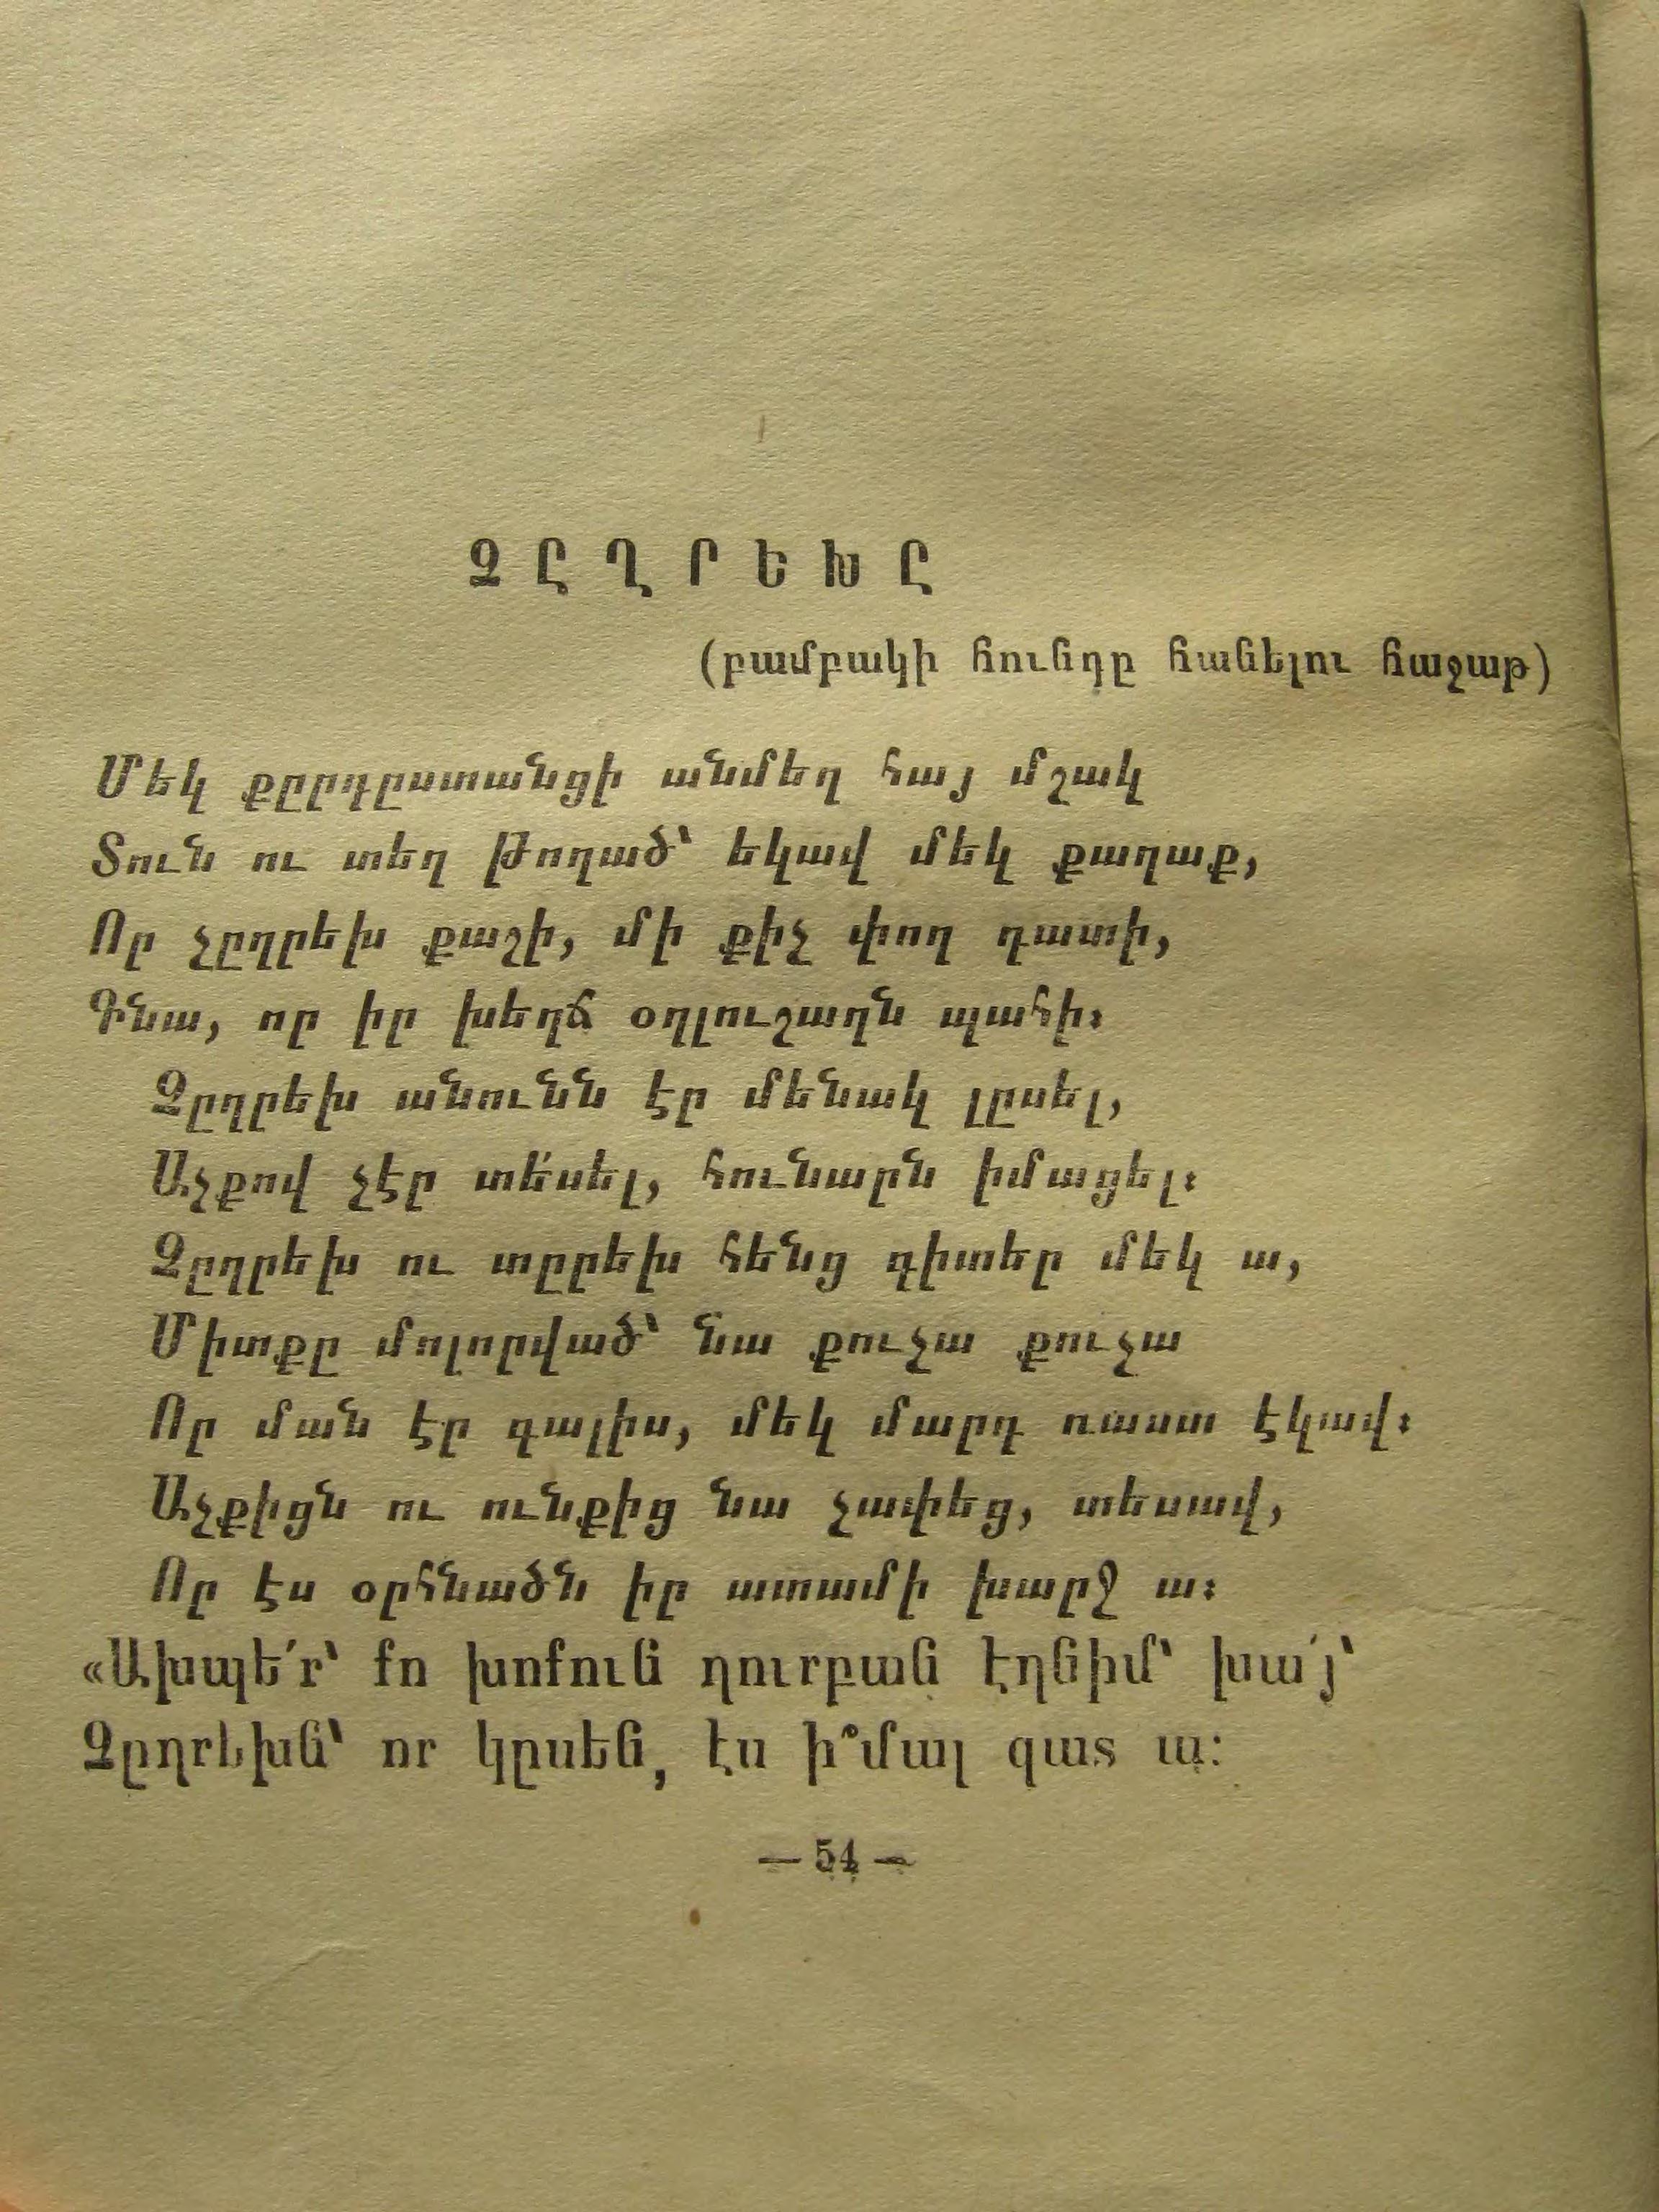 ՉԸՂՐԵԽԸ
(բամբակի հունդը հանելու հաջաթ)
Մեկ քըրդըստանցի անմեղ հայ մշակ
Տուն ու տեղ թողած՝ եկավ մեկ քաղաք,
Որ չըղրեխ քաշի, մի քիչ փող դատի,
Գնա, որ իր խեղճ օղլուշաղն պահի։
Չըղրեխ անունն էր մենակ լըսել,
Աչքով չէր տե՛սել, հունարն իմացել։
Չըղրեխ ու տըրեխ հենց գիտեր մեկ ա,
Միտքը մոլորված՝ նա քուչա քուչա
Որ ման էր գալիս, մեկ մարդ ռաստ էկավ։
Աչքիցն ու ունքից նա չափեց, տեսավ,
Որ էս օրհնածն իր ատամի խարջ ա։
«Ախպե՛ր՝ քո խոքուն ղուրբան էղնիմ՝ խա՛յ՝
Չըղրեխն՝ որ կըսեն, էս ի՞մալ զատ ա։
— 54 —